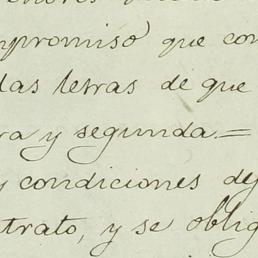 mpromiso que con
las letras de que
ra y segunda =
y condiciones de
trato, y se oblig